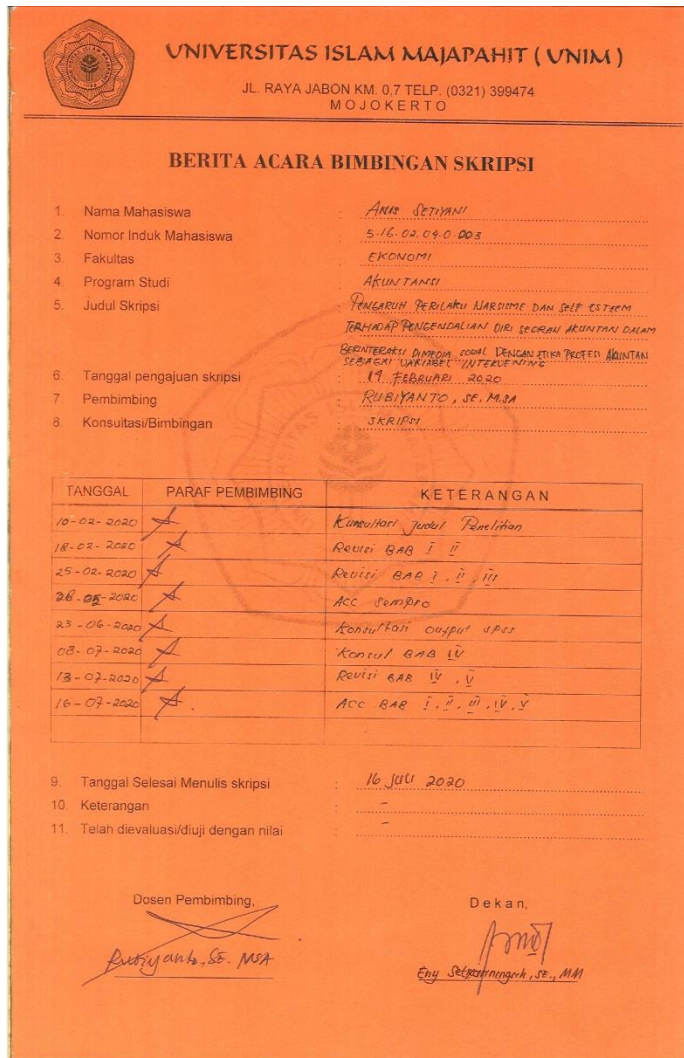 UNIVERSITAS ISLAM MAJAPAHIT ( UNIM )
JL. RAYA JABON KM. 0,7 TELP. (0321) 399474
MOJOKERTO
BERITA ACARA BIMBINGAN SKRIPSI
1. Nama Mahasiswa : ANIS SETIYANI
2. Nomor Induk Mahasiswa : 5.16.02.04.0.003
3. Fakultas : EKONOMI
4. Program Studi : AKUNTANSI
5. Judul Skripsi : PENGARUH PERILAKU NARSISME DAN SELF ESTEEM
TERHADAP PENGENDALIAN DIRI SEORAN AKUNTAN DALAM
BERINTERAKSI DIMEDIA SOCIAL DENGAN ETIKA PROFESI AKUNTAN
SEBAGAI VARIABEL INTERVENING
6. Tanggal pengajuan skripsi : 19 FEBRUARI 2020
7. Pembimbing : RUBIYANTO, SE. M.SA
8. Konsultasi/Bimbingan : SKRIPSI
TANGGAL PARAF PEMBIMBING KETERANGAN
10-02-2020 Konsultasi Judul Penelitian
18-02-2020 Revisi BAB I II
25-02-2020 Revisi BAB I, II, III
28-05-2020 Acc Sempro
23-06-2020 Konsultasi output spss
08-07-2020 Konsul BAB IV
13-07-2020 Revisi BAB IV, V
16-07-2020 ACC BAB I, II, III, IV, V
9. Tanggal Selesai Menulis skripsi : 16 JULI 2020
10. Keterangan : -
11. Telah dievaluasi/diuji dengan nilai : -
Dosen Pembimbing, Dekan,
Rubiyanto, SE. MSA Eny Setyariningsih, SE., MM